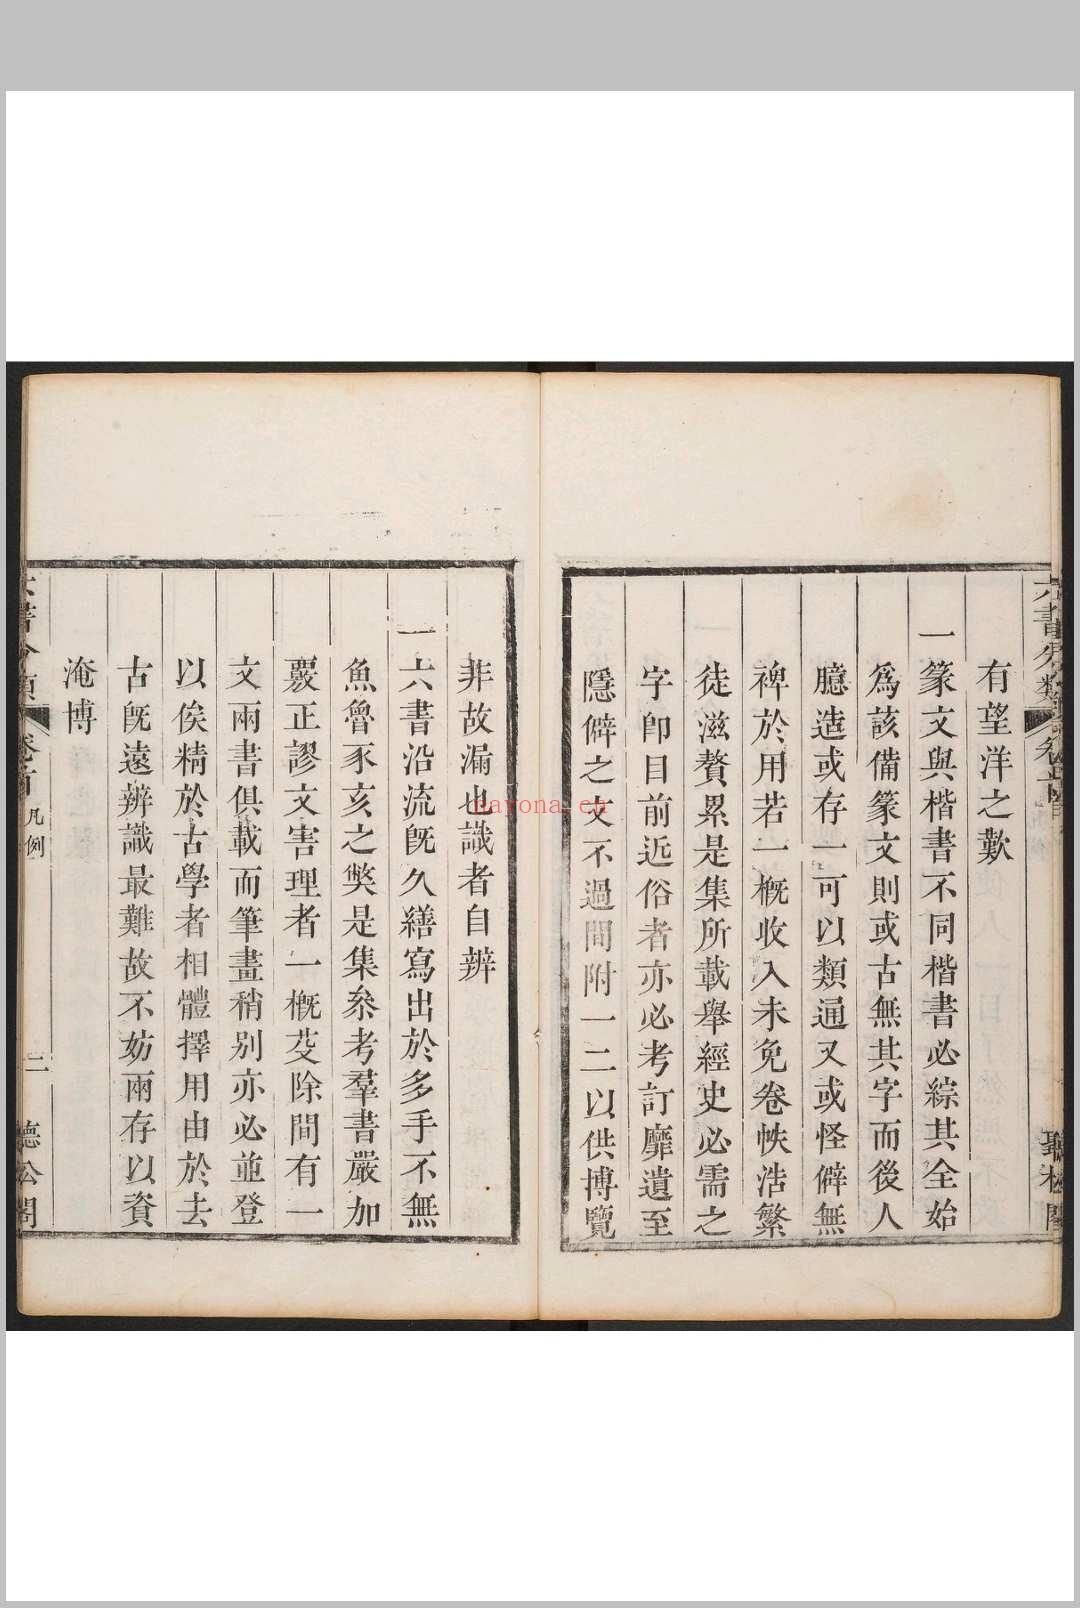 有望洋之歎
一篆文與楷書不同楷書必綜其全始
爲該備篆文則或古無其字而後人
臆造或存一可以類通又或怪僻無
裨於用若一槪收入未免卷帙浩繁
徒滋贅累是集所載舉經史必需之
字卽目前近俗者亦必考訂靡遺至
隱僻之文不過間附一二以供博覽
非故漏也識者自辨
一六書沿流旣久繕寫出於多手不無
魚魯豕亥之獘是集叅考羣書嚴加
覈正謬文害理者一槪芟除間有一
文兩書俱載而筆畫稍別亦必並登
以俟精於古學者相體擇用由於去
古旣遠辨識最難故不妨兩存以資
淹博
六書分類 卷首 凡例 二
nayona.cn